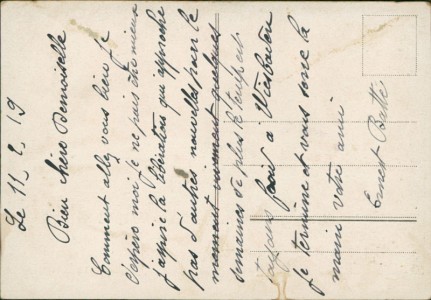 Le 11. 2. 19
Bien chère Demoiselle
Comment allez vous bien je
l'espère moi je ne puis être mieux
j'aspire la libération qui approche
pas d'autres nouvelles pour le
moment moment quelques
semaines de plus le temps est
toujours froid a Wiesbaden
je termine et vous serre la
main votre ami
Ernest Batte